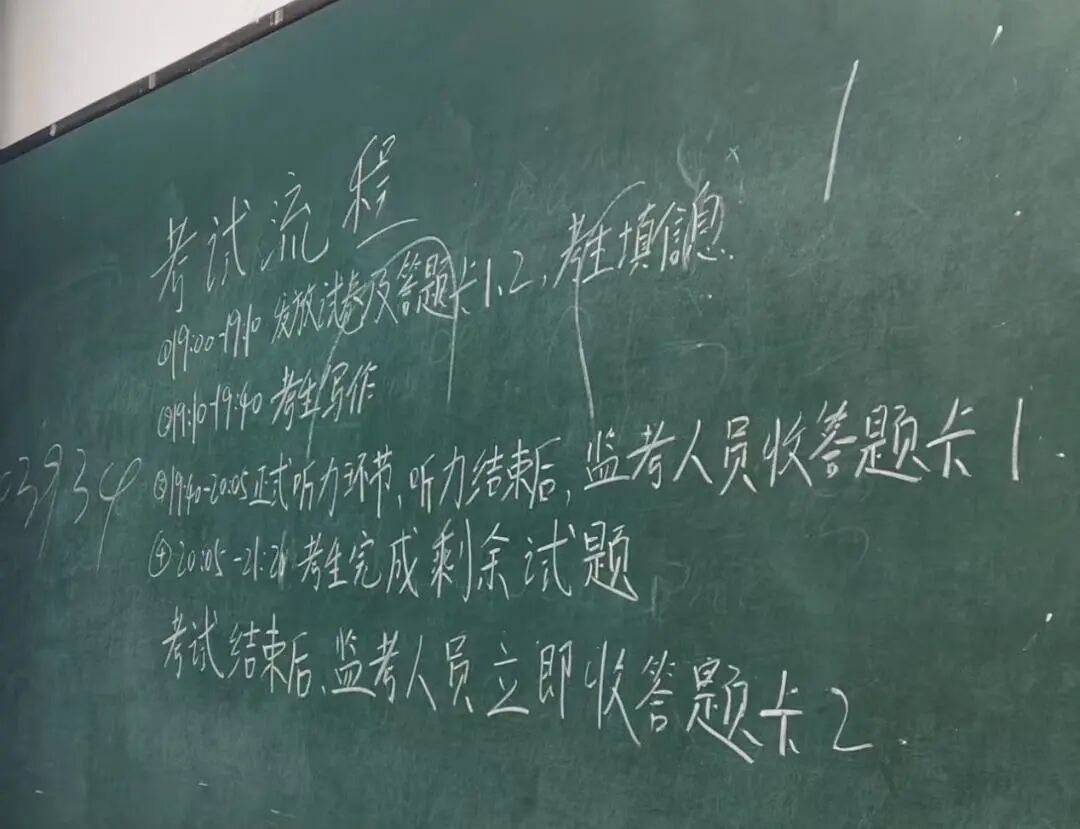 1
考试流程
①19:00-19:10 发放试卷及答题卡1、2，考生填信息.
②19:10-19:40 考生写作
③19:40-20:05正式听力环节、听力结束后，监考人员收答题卡1.
④20:05-21:20 考生完成剩余试题
考试结束后、监考人员立即收答题卡2.